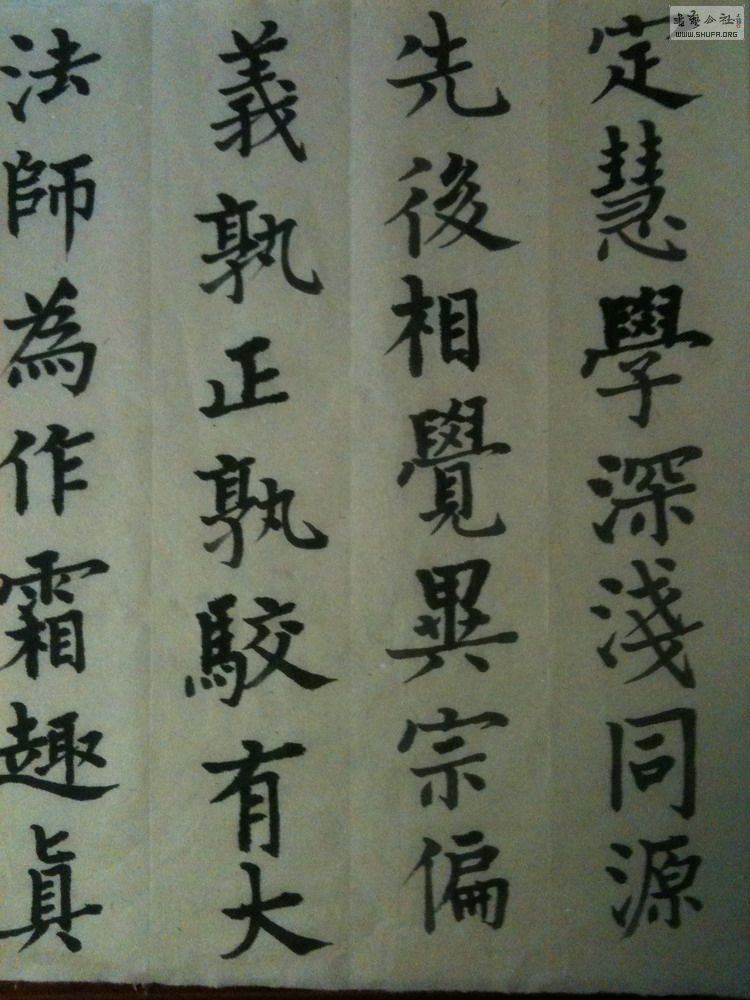 定慧學深淺同源
先後相覺異宗偏
義孰正孰駮有大
法師為作霜趣真
WWW.SHUFA.ORG